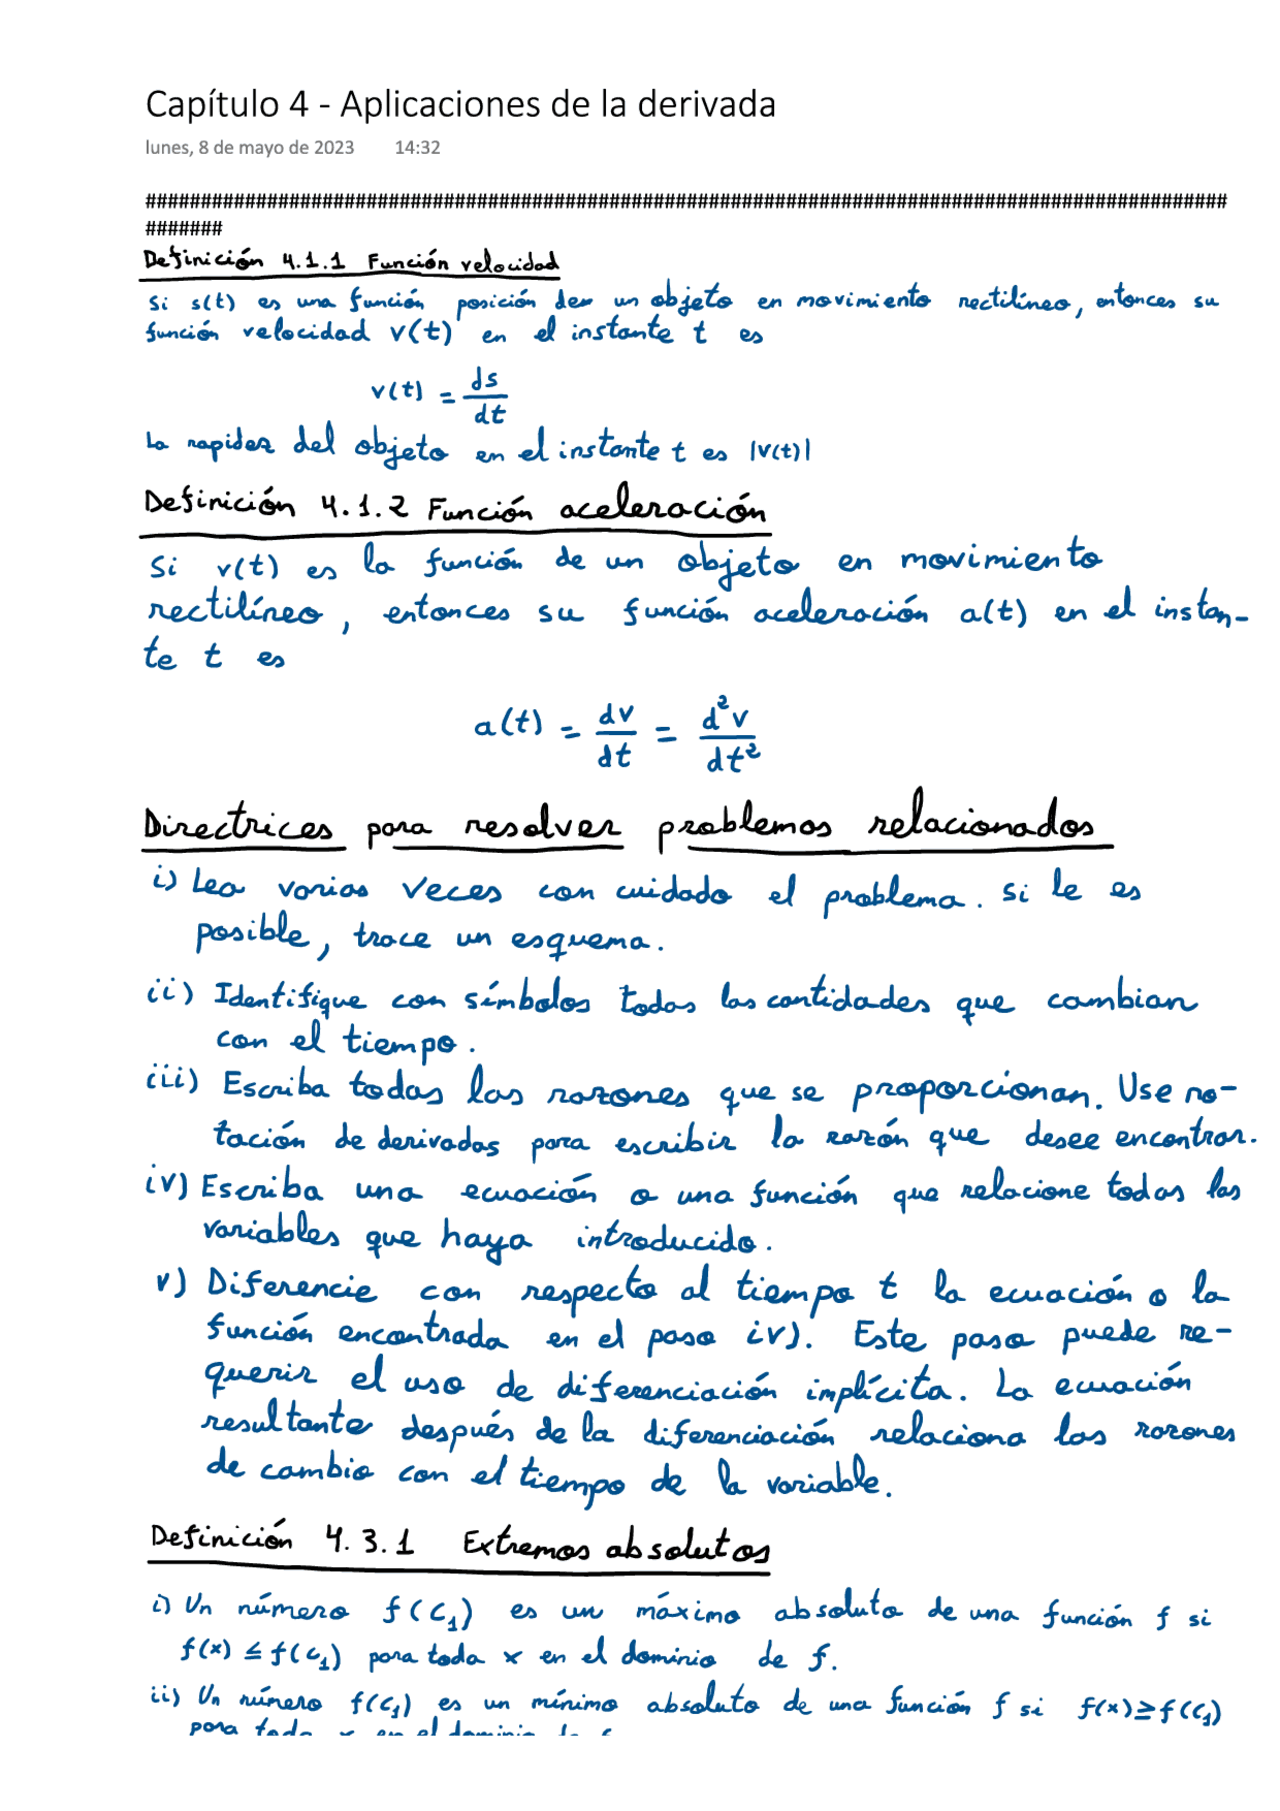 Capítulo 4 - Aplicaciones de la derivada
lunes, 8 de mayo de 2023 14:32
##################################################################################################
#######
Definición 4.1.1 Función velocidad
Si s(t) es una función posición de un objeto en movimiento rectilíneo, entonces su
función velocidad v(t) en el instante t es
v(t) = ds/dt
La rapidez del objeto en el instante t es |v(t)|
Definición 4.1.2 Función aceleración
Si v(t) es la función de un objeto en movimiento
rectilíneo, entonces su función aceleración a(t) en el instan-
te t es
a(t) = dv/dt = d²v/dt²
Directrices para resolver problemas relacionados
i) Lea varias veces con cuidado el problema. Si le es
posible, trace un esquema.
ii) Identifique con símbolos todas las cantidades que cambian
con el tiempo.
iii) Escriba todas las razones que se proporcionan. Use no-
tación de derivadas para escribir la razón que desee encontrar.
iv) Escriba una ecuación o una función que relacione todas las
variables que haya introducido.
v) Diferencie con respecto al tiempo t la ecuación o la
función encontrada en el paso iv). Este paso puede re-
querir el uso de diferenciación implícita. La ecuación
resultante después de la diferenciación relaciona las razones
de cambio con el tiempo de la variable.
Definición 4.3.1 Extremos absolutos
i) Un número f(c₁) es un máximo absoluto de una función f si
f(x) ≤ f(c₁) para toda x en el dominio de f.
ii) Un número f(c₁) es un mínimo absoluto de una función f si f(x) ≥ f(c₁)
para toda x en el dominio de f